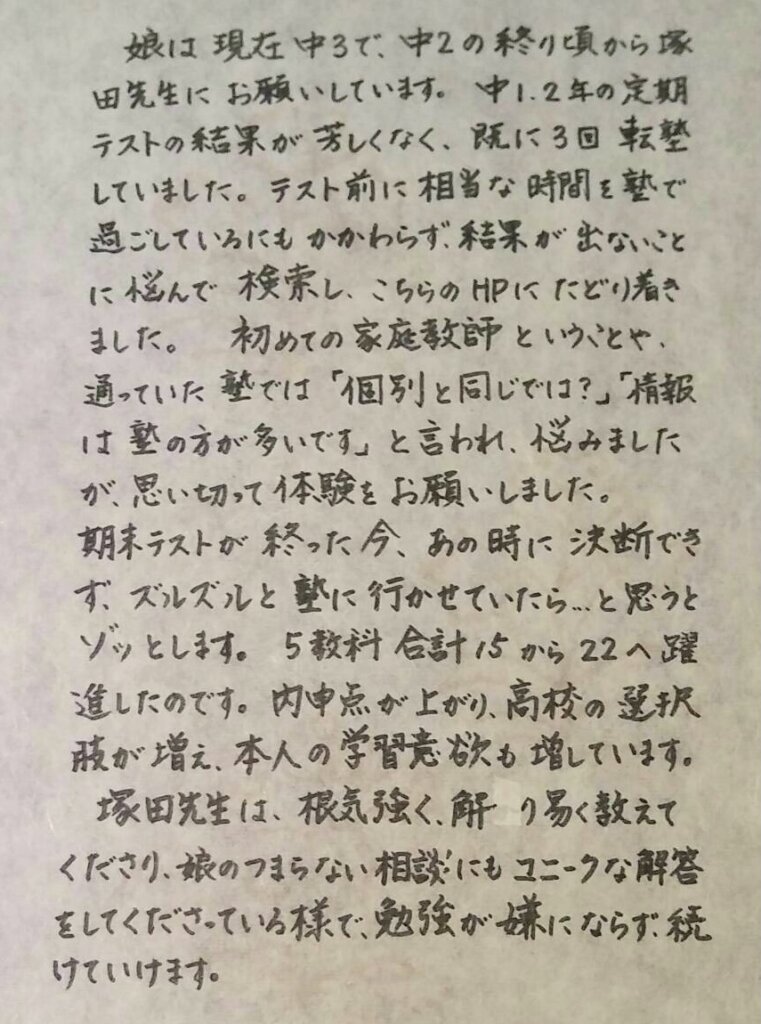 娘は現在中3で、中2の終り頃から塚
田先生にお願いしています。中1.2年の定期
テストの結果が芳しくなく、既に3回転塾
していました。テスト前に相当な時間を塾で
過ごしているにもかかわらず、結果が出ないこと
に悩んで検索し、こちらのHPにたどり着き
ました。 初めての家庭教師ということや、
通っていた塾では「個別と同じでは?」「情報
は塾の方が多いです」と言われ、悩みました
が、思い切って体験をお願いしました。
期末テストが終った今、あの時に決断でき
ず、ズルズルと塾に行かせていたら…と思うと
ゾッとします。5教科合計15から22へ躍
進したのです。内申点が上がり、高校の選択
肢が増え、本人の学習意欲も増しています。
塚田先生は、根気強く、解り易く教えて
くださり、娘のつまらない相談にもユニークな解答
をしてくださっている様で、勉強が嫌にならず、続
けていけます。